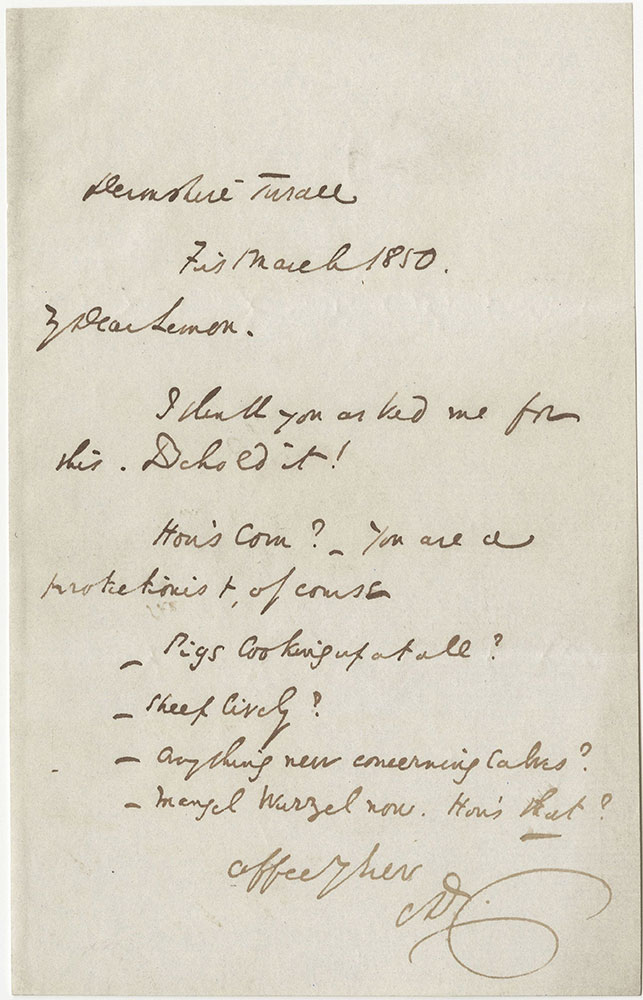 Devonshire Terrace
First March 1850.
My Dear Lemon.
I think you asked me for
this. Behold it!
How's Corn? – You are a
protectionist, of course
– Pigs looking up at all?
– Sheep lively?
– Anything new concerning Calves?
– Mangel Wurzel now. How's that?
affecy Ever
CD.